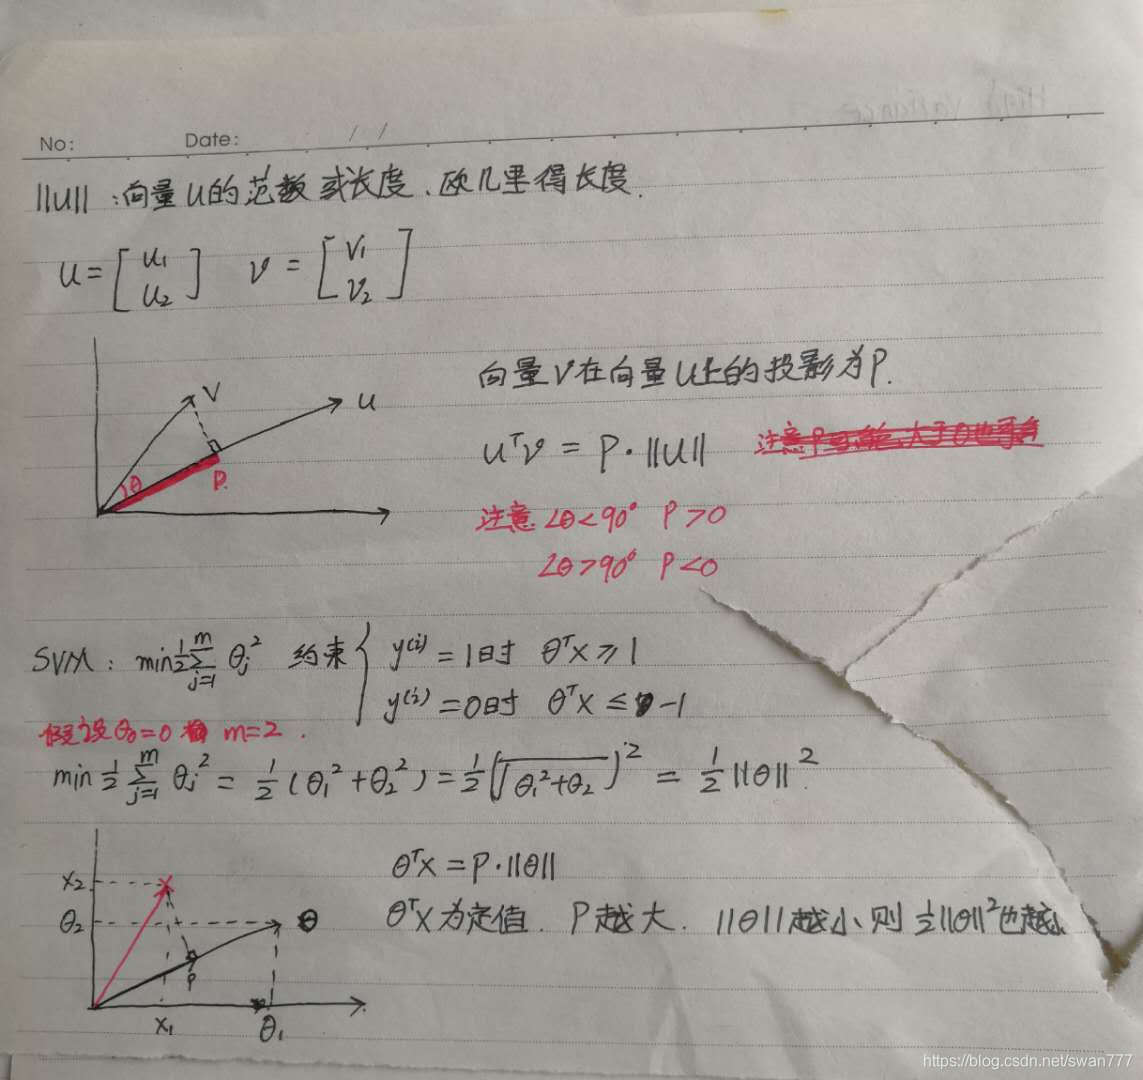 No:
Date: / /
||U|| :向量U的范数或长度、欧几里得长度.
U = [ u1 u2 ] v = [ V1 V2 ]
V
u
θ
P.
向量V在向量U上的投影为P.
uᵀv = P·||U||
注意 ∠θ<90° P>0
∠θ>90° P<0
SVM: min½∑_{j=1}^{m} θj² 约束 { y⁽ⁱ⁾=1时 θᵀX≥1
y⁽ⁱ⁾=0时 θᵀX≤-1
假设θ0=0 m=2.
min ½ ∑_{j=1}^{m} θj² = ½(θ1²+θ2²) = ½(√(θ1²+θ2))² = ½||θ||²
X2
θ2
X
θ
P
X1
θ1
θᵀX = P·||θ||
θᵀX为定值. P越大. ||θ||越小、则½||θ||²也越小
https://blog.csdn.net/swan777